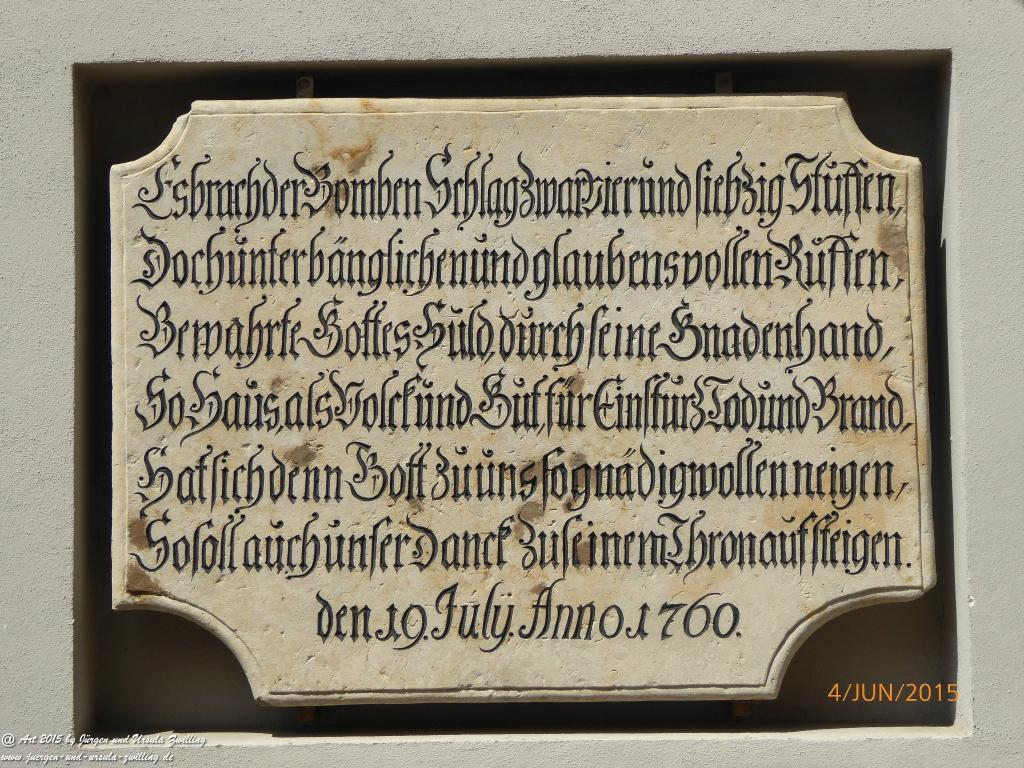 Es brach der Bomben Schlag zwar vier und siebzig Stuffen,
Doch unter bänglichen und glaubensvollen Ruffen,
Bewahrte Gottes Huld, durch seine Gnadenhand,
So Haus, als Volck und Gut, für Einsturz Tod und Brand,
Hat sich denn Gott zu uns so gnädig wollen neigen,
So soll auch unser Danck zu seinem Thron aufsteigen.
den 19. Julÿ. Anno 1760.
4/JUN/2015
@ Art 2015 by Jürgen und Ursula Zwilling
www.juergen-und-ursula-zwilling.de